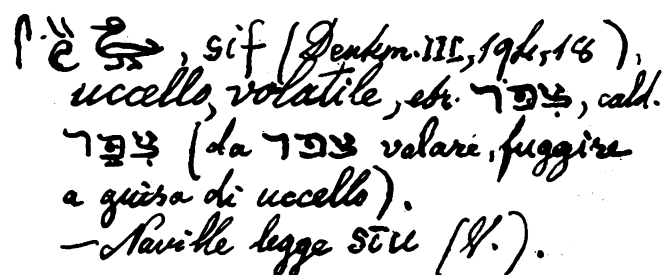 , sif (Denkm. III, 194, 18),
uccello, volatile, ebr. צִפֹּר, cald.
צִפַּר (da צפר volare, fuggire
a guisa di uccello).
— Naville legge sīu (V.).